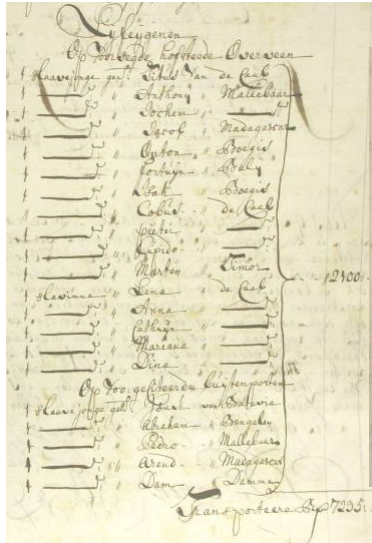 Lyfeijgenen
Op voorsegde hofsteede Overveen
1 slaave jonge gent. Titus van de Caab
1 " Anthonij " Mallebaar
1 " Jochem "
1 " Jacob " Madagascar
1 " Anton " Boegis
1 " Fortuijn " Balij
1 " Isak " Boegis
" Cobus " de Caab
1 " Pieter "
1 " Cupido "
1 " Marten " Timor
1 slavinne " Lena " de Caab 2400
1 " Anna "
1 " Cathrijn "
1 " Mariana "
1 " Dina "
Op buijtenposten
1 slaave jonge gent. Joost van Batavia
1 " " Bengalen
1 " Pedro " Mallebaar
1 " Arend " Madagascar
1 " Dam " Damma
Transporteere 7235